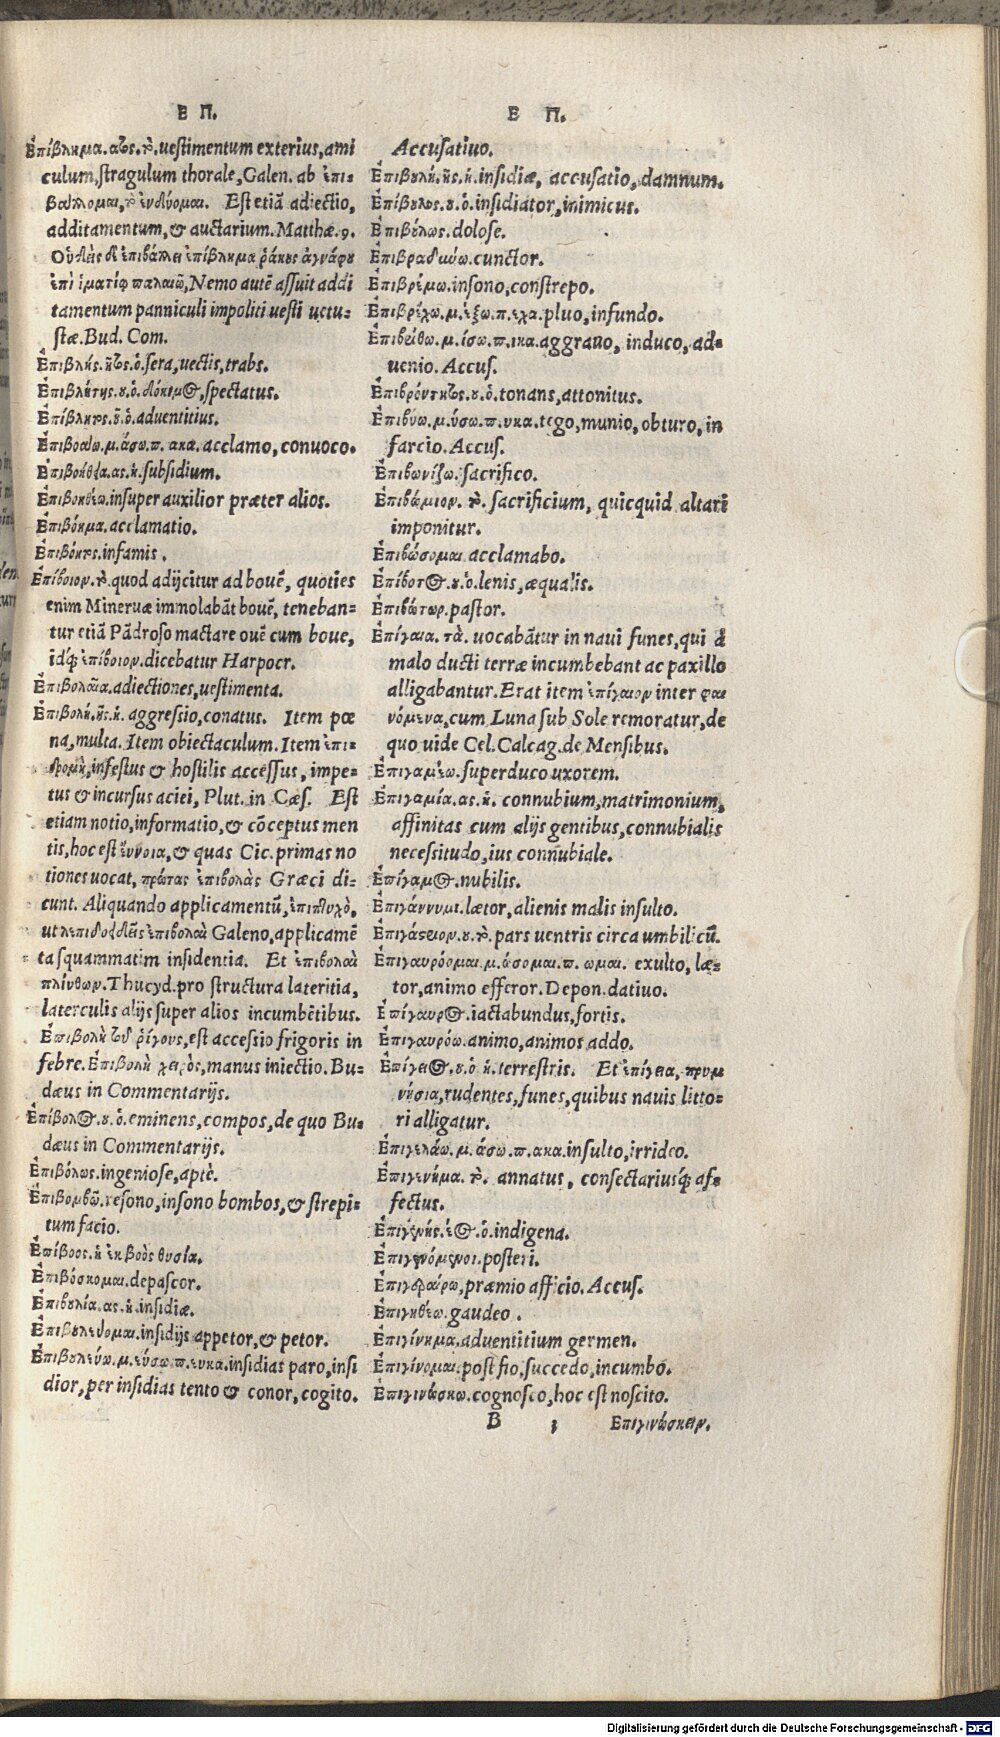 Ε Π.
Ἐπίβλημα.ατος.τὸ.uestimentum exterius,ami
culum,stragulum thorale, Galen. ab ἐπι-
βάλλομαι,τὸ ἐνδύομαι. Est etiã adiectio,
additamentum, & auctarium. Matthæ.9.
Οὐδεὶς δὲ ἐπιβάλλει ἐπίβλημα ῥάκους ἀγνάφου
ἐπὶ ἱματίῳ παλαιῷ, Nemo autẽ assuit addi
tamentum panniculi impoliti uesti uetu-
stæ. Bud. Com.
Ἐπιβλής.ῆτος.ὁ.sera,uectis,trabs.
Ἐπιβλήτης.ου.ὁ.δόκιμος,spectatus.
Ἐπίβλητος.ου.ὁ.aduentitius.
Ἐπιβοάω.μ.άσω.π.ακα.acclamo, conuoco.
Ἐπιβοήθεια.ας.ἡ.subsidium.
Ἐπιβοηθέω.insuper auxilior præter alios.
Ἐπιβόημα.acclamatio.
Ἐπιβόητος.infamis.
Ἐπίβοιον.τὸ.quod adijcitur ad bouẽ, quoties
enim Mineruæ immolabãt bouẽ, teneban-
tur etiã Pãdroso mactare ouẽ cum boue,
idq́; ἐπίβοιον.dicebatur Harpocr.
Ἐπιβολαῖα.adiectiones,uestimenta.
Ἐπιβολή.ῆς.ἡ. aggressio,conatus. Item pœ
na,multa. Item obiectaculum. Item ἐπι-
δρομή,infestus & hostilis accessus, impe-
tus & incursus aciei, Plut. in Cæs. Est
etiam notio,informatio,& cõceptus men
tis,hoc est ἔννοια,& quas Cic. primas no
tiones uocat, πρώτας ἐπιβολὰς Græci di-
cunt. Aliquando applicamentũ, ἐπιπτυχὸ,
ut λεπιδοειδεῖς ἐπιβολαὶ Galeno, applicamẽ
ta squammatim insidentia. Et ἐπιβολαὶ
πλίνθων. Thucyd. pro structura lateritia,
laterculis alijs super alios incumbẽtibus.
Ἐπιβολὴ τοῦ ῥίγους,est accessio frigoris in
febre. Ἐπιβολὴ χειρὸς,manus iniectio. Bu-
dæus in Commentarijs.
Ἐπίβολος.ου.ὁ.eminens, compos, de quo Bu-
dæus in Commentarijs.
Ἐπιβόλως.ingeniose, aptè.
Ἐπιβομβῶ.resono,insono bombos,& strepi-
tum facio.
Ἐπίβοος.ἡ ἐκ βοὸς θυσία.
Ἐπιβόσκομαι.depascor.
Ἐπιβουλία.ας.ἡ.insidiæ.
Ἐπιβουλεύομαι.insidijs appetor,& petor.
Ἐπιβουλεύω.μ.εύσω.π.ευκα.insidias paro,insi
dior,per insidias tento & conor, cogito.
Ε Π.
Accusatiuo.
Ἐπιβουλή.ῆς.ἡ.insidiæ, accusatio, damnum.
Ἐπίβουλος.ου.ὁ.insidiator,inimicus.
Ἐπιβούλως.dolose.
Ἐπιβραδύνω.cunctor.
Ἐπιβρέμω.insono,constrepo.
Ἐπιβρέχω.μ.έξω.π.εχα.pluo, infundo.
Ἐπιβρίθω.μ.ίσω.π.ικα.aggrauo, induco, ad-
uenio. Accus.
Ἐπιβρόντητος.ου.ὁ.tonans,attonitus.
Ἐπιβύω.μ.ύσω.π.υκα.tego,munio, obturo, in
farcio. Accus.
Ἐπιβωνίζω.sacrifico.
Ἐπιβώμιον.τὸ. sacrificium, quicquid altari
imponitur.
Ἐπιβώσομαι acclamabo.
Ἐπίβοτος.ου.ὁ.lenis,æqualis.
Ἐπιβώτωρ.pastor.
Ἐπίγαια.τὰ. uocabãtur in naui funes,qui à
malo ducti terræ incumbebant ac paxillo
alligabantur. Erat item ἐπίγαιον inter φαι
νόμενα,cum Luna sub Sole remoratur, de
quo uide Cel. Calcag. de Mensibus.
Ἐπιγαμέω.superduco uxorem.
Ἐπιγαμία.ας.ἡ. connubium,matrimonium,
affinitas cum alijs gentibus,connubialis
necessitudo, ius connubiale.
Ἐπίγαμος.nubilis.
Ἐπιγάννυμι.lætor,alienis malis insulto.
Ἐπιγάστριον.ου.τὸ.pars uentris circa umbilicũ.
Ἐπιγαυρόομαι.μ.άσομαι.π. ωμαι. exulto, læ-
tor,animo efferor. Depon. datiuo.
Ἐπίγαυρος.iactabundus,fortis.
Ἐπιγαυρόω.animo, animos addo.
Ἐπίγειος.ου.ὁ ἡ.terrestris. Et ἐπίγεια, πρυμ
νήσια,rudentes,funes,quibus nauis litto-
ri alligatur.
Ἐπιγελάω.μ.άσω.π.ακα.insulto,irrideo.
Ἐπιγένημα.τὸ. annatus, consectariusq́; af-
fectus.
Ἐπιγενής.έος.ὁ.indigena.
Ἐπιγενόμενοι.posteri.
Ἐπιγεραίρω, præmio afficio. Accus.
Ἐπιγηθέω.gaudeo.
Ἐπιγίνημα.aduentitium germen.
Ἐπιγίνομαι.post fio,succedo, incumbo.
Ἐπιγινώσκω.cognosco,hoc est noscito.
B 3 Ἐπιγινώσκειν.
Digitalisierung gefördert durch die Deutsche Forschungsgemeinschaft - DFG